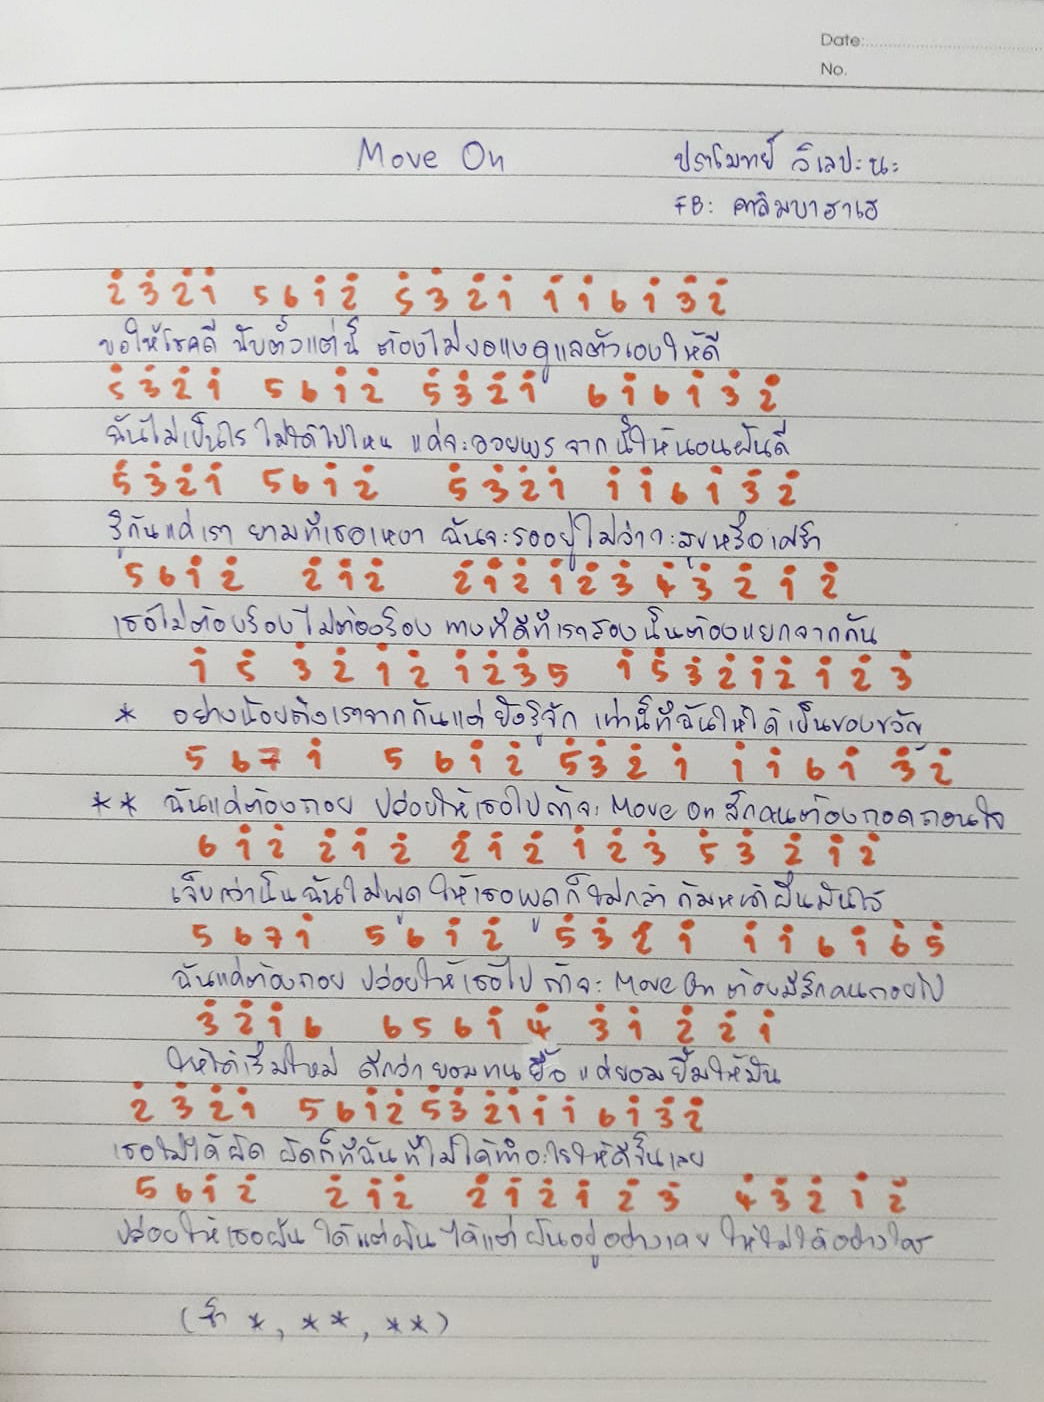 Date:
No.
Move On ปราโมทย์ วิเลปะนะ
FB: คาลิมบาฮาเฮ
2̇ 3̇ 2̇ 1̇ 5 6 1̇ 2̇ 5̇ 3̇ 2̇ 1̇ 1̇ 1̇ 6 1̇ 3̇ 2̇
ขอให้โชคดี นับตั้งแต่นี้ ต้องไม่งอแงดูแลตัวเองให้ดี
5̇ 3̇ 2̇ 1̇ 5 6 1̇ 2̇ 5̇ 3̇ 2̇ 1̇ 6 1̇ 6 1̇ 3̇ 2̇
ฉันไม่เป็นไร ไม่ได้ไปไหน แค่จะอวยพร จากนี้ให้นอนฝันดี
5̇ 3̇ 2̇ 1̇ 5 6 1̇ 2̇ 5̇ 3̇ 2̇ 1̇ 1̇ 1̇ 6 1̇ 3̇ 2̇
รู้กันแค่เรา ยามที่เธอเหงา ฉันจะรออยู่ไม่ว่าจะสุขหรือเศร้า
5 6 1̇ 2̇ 2̇ 1̇ 2̇ 2̇ 1̇ 2̇ 1̇ 2̇ 3̇ 4̇ 3̇ 2̇ 1̇ 2̇
เธอไม่ต้องร้อง ไม่ต้องร้อง ทางที่ดีที่เราสองนั้นต้องแยกจากกัน
1̇ 5̇ 3̇ 2̇ 1̇ 2̇ 1̇ 2̇ 3̇ 5 1̇ 5̇ 3̇ 2̇ 1̇ 2̇ 1̇ 2̇ 3̇
* อย่างน้อยถึงเราจากกันแต่ ยังรู้จัก เท่านี้ที่ฉันให้ได้ เป็นของขวัญ
5 6 7 1̇ 5 6 1̇ 2̇ 5̇ 3̇ 2̇ 1̇ 1̇ 1̇ 6 1̇ 3̇ 2̇
** ฉันแค่ต้องถอย ปล่อยให้เธอไป ถ้าจะ Move On สักคนต้องถอดถอนใจ
6 1̇ 2̇ 2̇ 1̇ 2̇ 2̇ 1̇ 2̇ 1̇ 2̇ 3̇ 5̇ 3̇ 2̇ 1̇ 2̇
เจ็บกว่านั้น ฉันไม่พูด ให้เธอพูดก็ไม่กล้า ก้มหน้าฝืนมันไว้
5 6 7 1̇ 5 6 1̇ 2̇ 5̇ 3̇ 2̇ 1̇ 1̇ 1̇ 6 1̇ 6̇ 5̇
ฉันแค่ต้องถอย ปล่อยให้เธอไป ถ้าจะ Move On ต้องมีสักคนถอยไป
3̇ 2̇ 1̇ 6 6 5 6 1̇ 4̇ 3̇ 1̇ 2̇ 2̇ 1̇
ให้ได้เริ่มใหม่ ดีกว่ายอมทน ยื้อ แค่ยอมยิ้มให้มัน
2̇ 3̇ 2̇ 1̇ 5 6 1̇ 2̇ 5̇ 3̇ 2̇ 1̇ 1̇ 1̇ 6 1̇ 3̇ 2̇
เธอไม่ได้ผิด ผิดก็ที่ฉัน ที่ไม่ได้ทำอะไรให้ดีขึ้นเลย
5 6 1̇ 2̇ 2̇ 1̇ 2̇ 2̇ 1̇ 2̇ 1̇ 2̇ 3̇ 4̇ 3̇ 2̇ 1̇ 2̇
ปล่อยให้เธอฝัน ได้แต่ฝัน ได้แต่ ฝันอยู่อย่างเคย ให้ไม่ได้อย่างใคร
(ซ้ำ *, **, **)